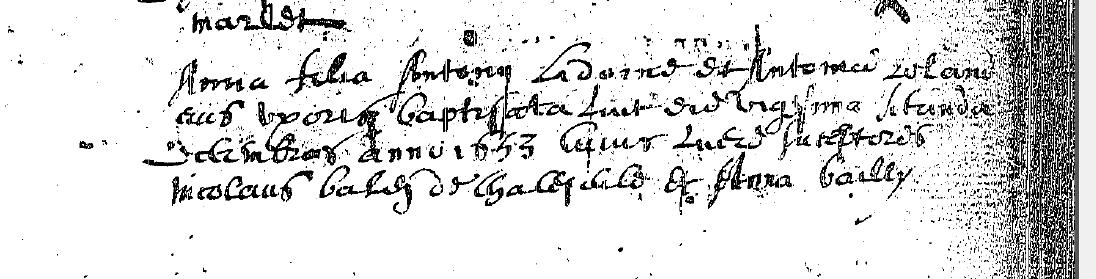 Anna filia Antonij Ladoine et Antoniae roland
eius uxoris baptisata fuit die vigesima secunda
decembris anno 1653 cuius fuere susceptores
Nicolaus et Anna bailly